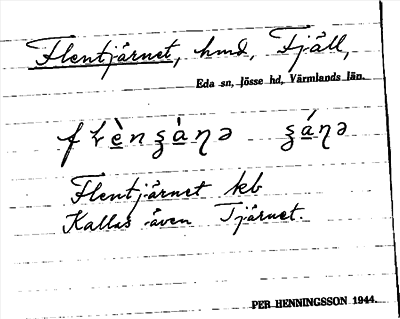 Flentjärnet, hmd, Fjäll,
Eda sn, Jösse hd, Värmlands län.
Flentjärnet kb
Kallas även Tjärnet.
PER HENNINGSSON 1944.